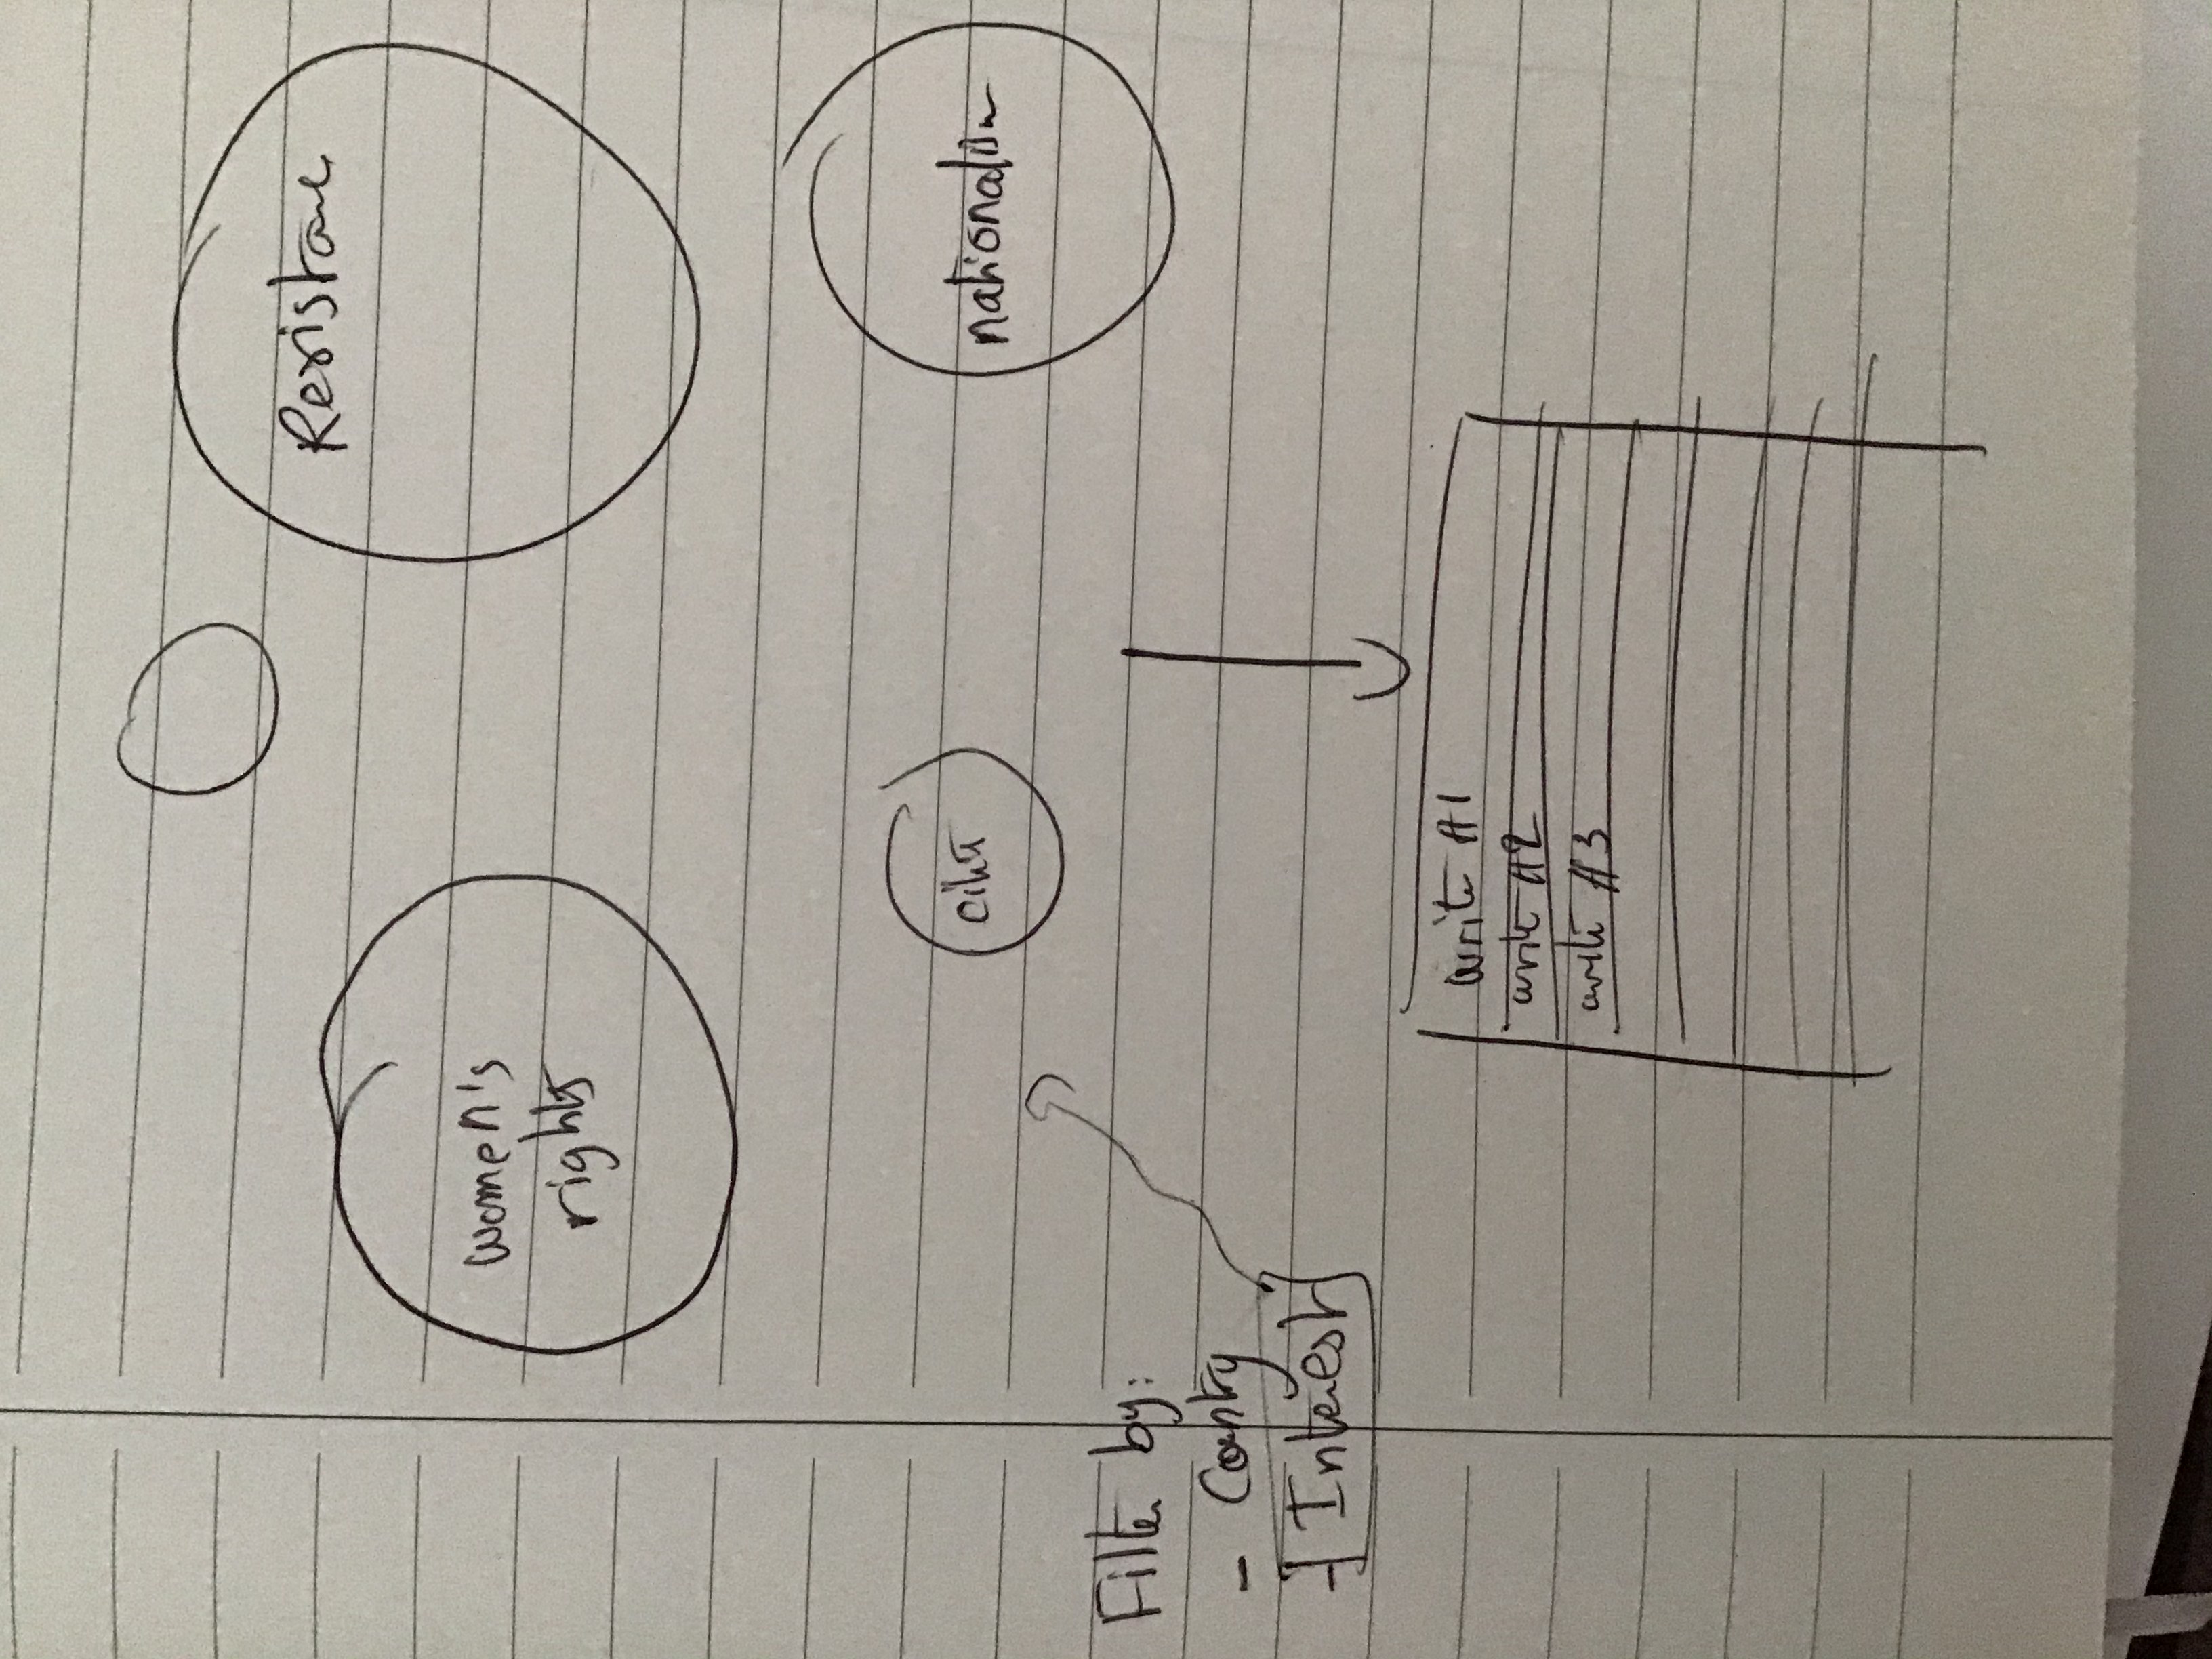 Resistance
women's
rights
nationalism
Filter by:
- Country
- Interest
writer #1
writer #2
writer #3